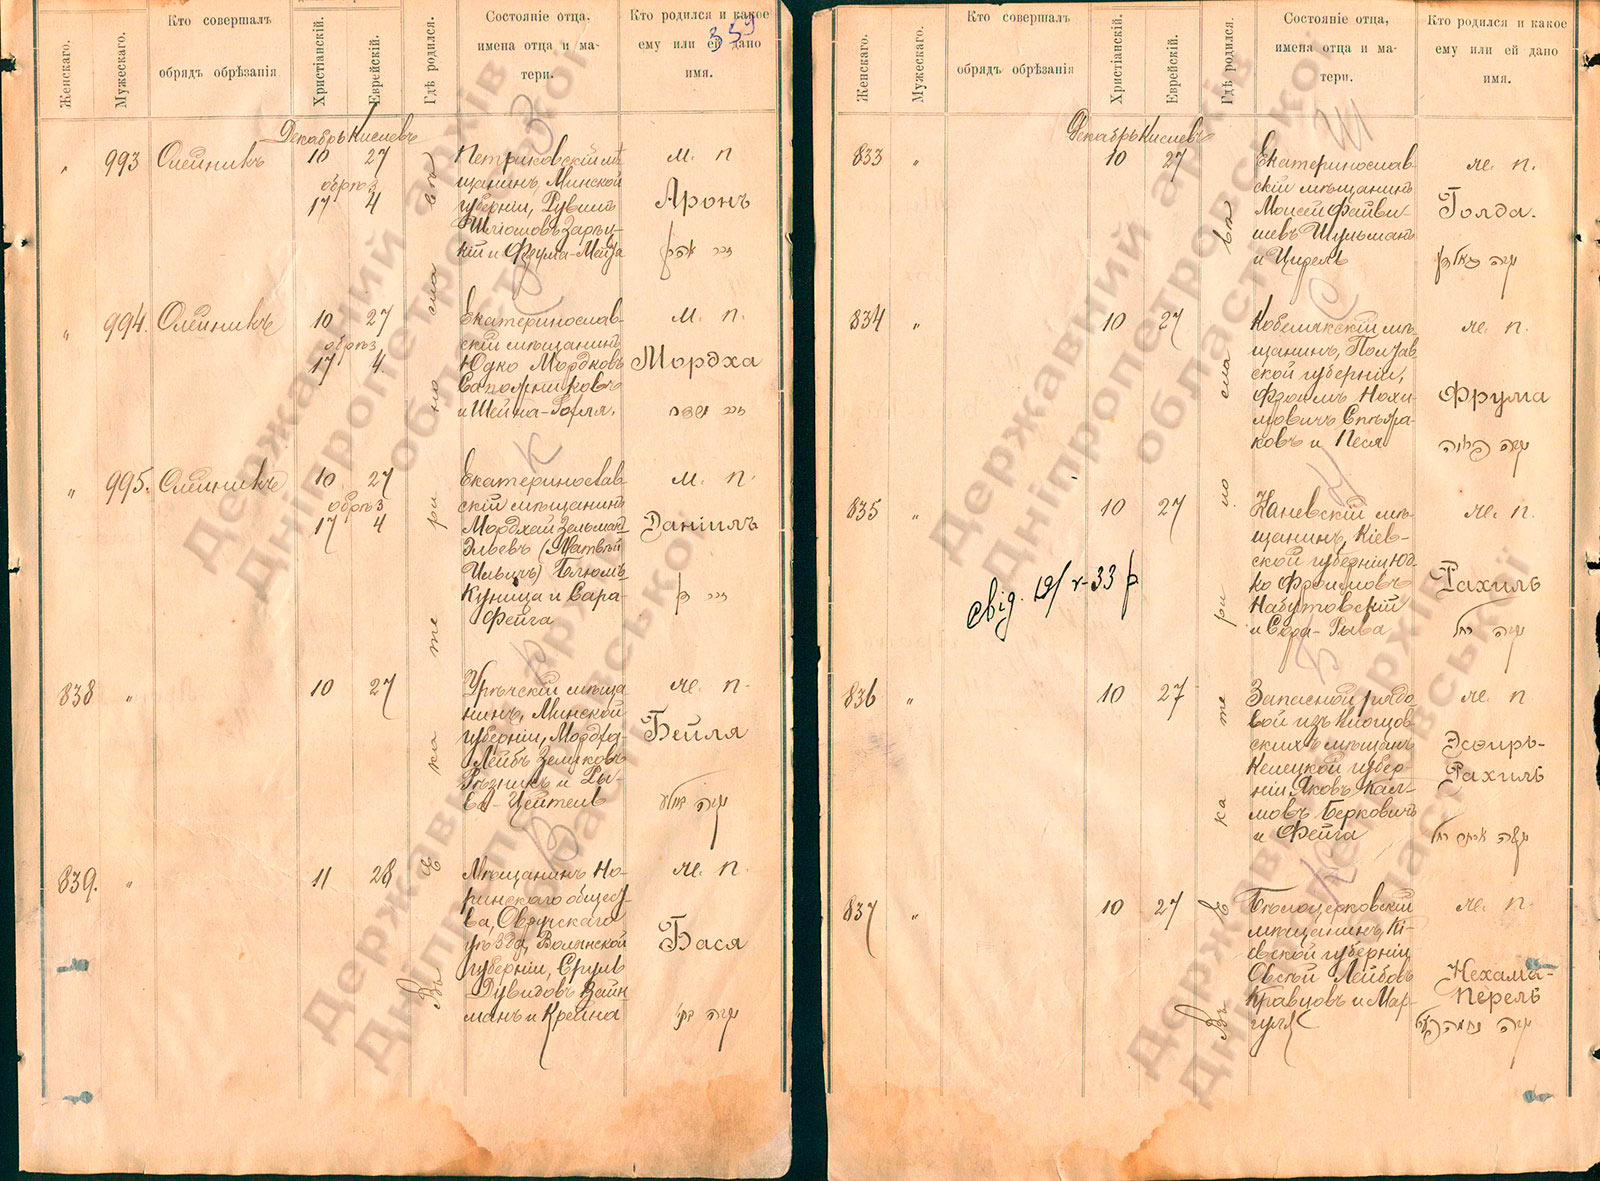 339
Женскаго.
Мужескаго.
Кто совершалъ
обрядъ обрѣзанія
Христіанскій.
Еврейскій.
Гдѣ родился.
Состояніе отца,
имена отца и ма-
тери.
Кто родился и какое
ему или ей дано
имя.
Декабрь Кислевъ
" 993 Олейникъ 10 27
обрѣз
17 4
Петриковскій мѣ-
щанинъ, Минской
губерніи, Рувинъ
Шліомовъ Зарѣц-
кій и Фрума-Мейза
м. п
Аронъ
" 994. Олейникъ 10 27
обрѣз
17 4.
Екатеринослав-
скій мѣщанинъ
Юдко Мордковъ
Сапожниковъ
и Шейна-Рохля.
м. п.
Мордха
" 995. Олейникъ 10 27
обрѣз
17 4
Екатеринослав-
скій мѣщанинъ
Мордхай Зельман-
Эльевъ (Матвѣй
Ильичъ) Блюмъ-
Куница и Сара-
Фейга
м. п.
Даніилъ
838 " 10 27
Урѣчскій мѣща-
нинъ, Минской
губерніи, Мордха-
Лейбъ Зеликовъ
Рѣзникъ и Ры-
ва-Цейтель
же. п.
Бейля
839. " 11 28
Мѣщанинъ Но-
ринскаго общест-
ва, Овручскаго
уѣзда, Волынской
губерніи, Сруль
Дувидовъ Вайн-
манъ и Крейна
же. п.
Бася
Въ Екатеринославѣ
Женскаго.
Мужескаго.
Кто совершалъ
обрядъ обрѣзанія
Христіанскій.
Еврейскій.
Гдѣ родился.
Состояніе отца,
имена отца и ма-
тери.
Кто родился и какое
ему или ей дано
имя.
Декабрь Кислевъ
833 " 10 27
Екатеринослав-
скій мѣщанинъ
Моисей Файви-
шевъ Шульманъ
и Цирель
же. п.
Голда.
834 " 10 27
Кобелякскій мѣ-
щанинъ, Полтав-
ской губерніи,
Фроимъ Нохи-
мовичъ Спѣва-
ковъ и Песя
же. п.
Фрума
835 " 10 27
Каневскій мѣ-
щанинъ, Кіев-
ской губерніи Юд-
ко Фроимовъ
Набутовскій
и Сора-Рыва
же. п.
Рахиль
свід. 19/V-33 р
836 " 10 27
Запасной рядо-
вой изъ
скихъ мѣщанъ
Келецкой губер-
ніи Яковъ Кал-
мовъ Берковичъ
и Фейга
же. п
Эсѳирь-
Рахиль
837 " 10 27
Бѣлоцерковскій
мѣщанинъ, Кі-
евской губерніи,
Овсѣй Лейбовъ
Кравцовъ и Мар-
гуля
же. п.
Нехама-
Перель
Въ Екатеринославѣ
Державний архів
Дніпропетровської
області
Державний архів
Дніпропетровської
області